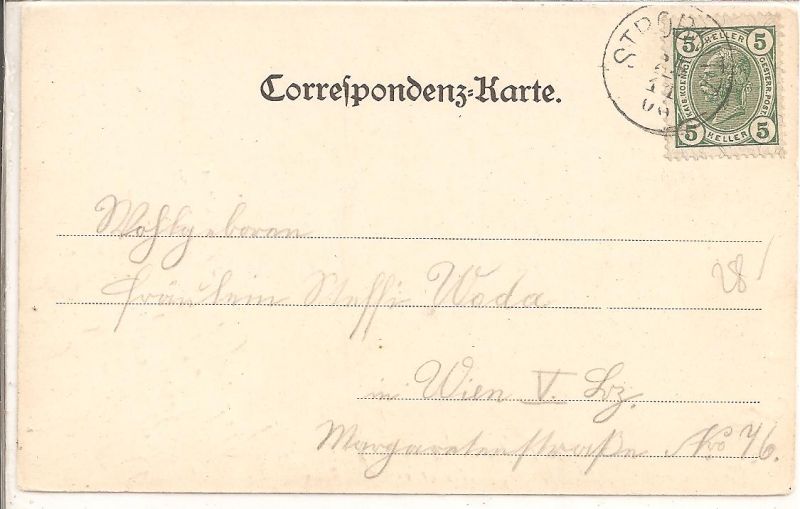 STROB
5 HELLER 5
KAIS.KOENIGL. OESTERR.POST.
5 HELLER 5
Correſpondenz-Karte.
Wohlgeboren
Fräulein Steffi Woda
28
in Wien V. Bz.
Margaretenstraße Nro 76.